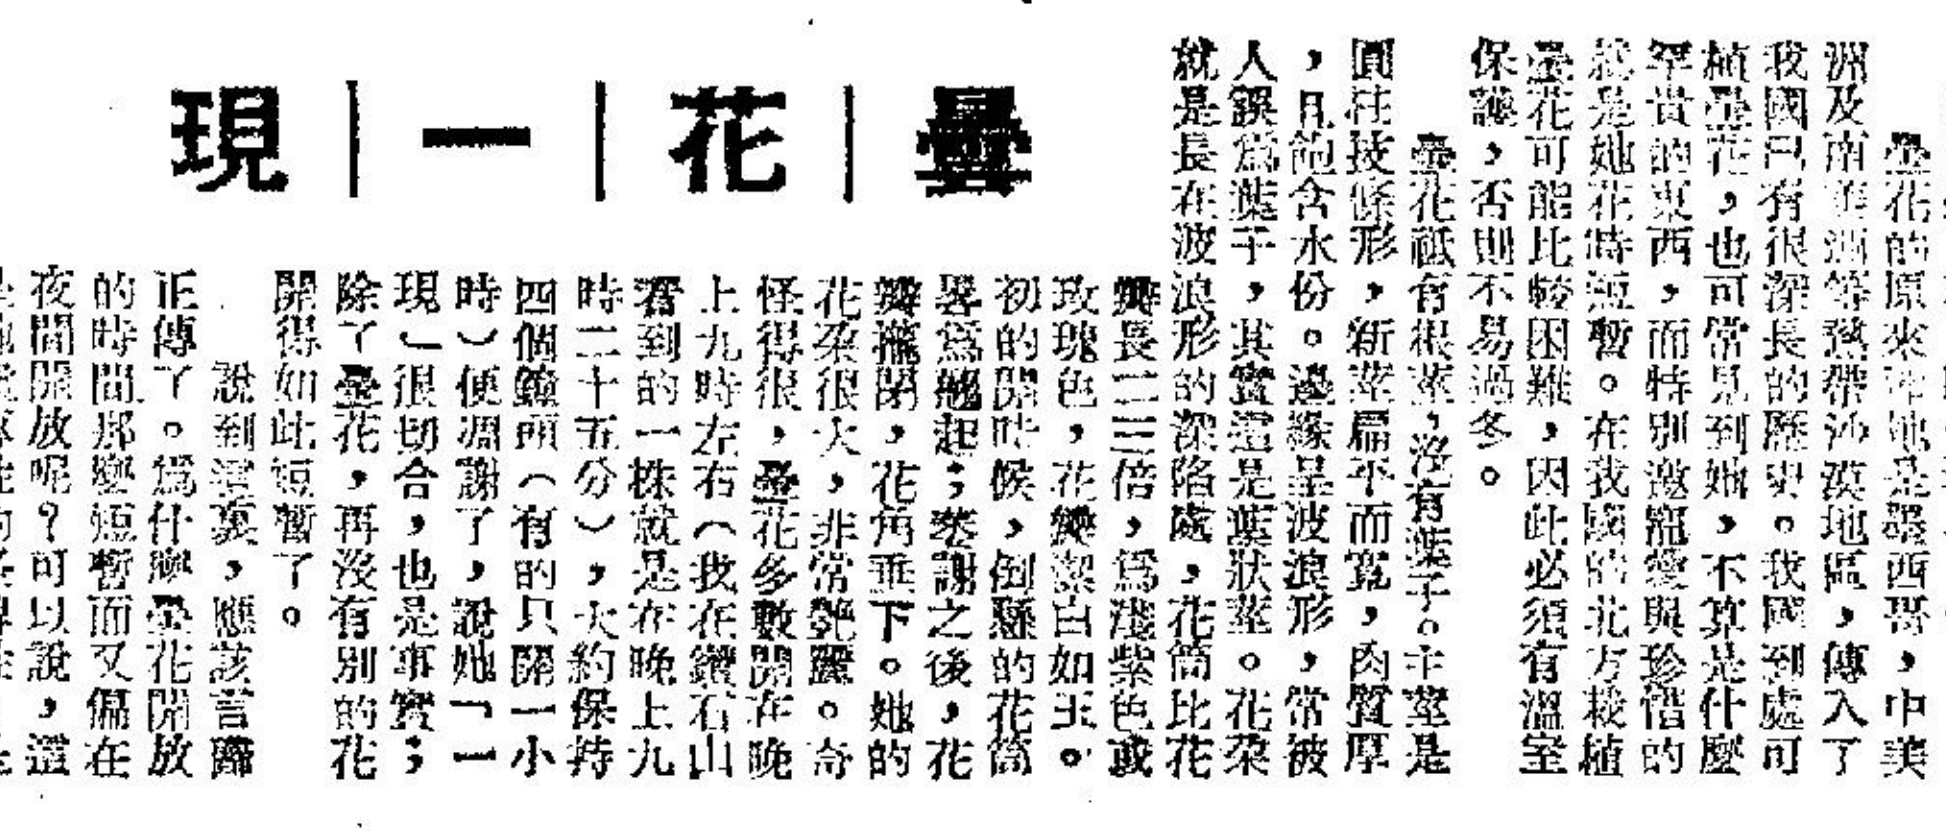 曇｜花｜一｜現
曇花的原來產地是墨西哥，中美
洲及南美洲等熱帶沙漠地區，傳入了
我國已有很深長的歷史。我國到處可
植曇花，也可常見到她，不算是什麼
罕貴的東西，而特別邀寵愛與珍惜的
就是她花時短暫。在我國的北方栽植
曇花可能比較困難，因此必須有溫室
保護，否則不易過冬。
曇花祗有根莖，沒有葉子。主莖是
圓柱技條形，新莖扁平而寬，肉質厚
，且飽含水份。邊緣呈波浪形，常被
人誤爲葉子，其實這是葉狀莖。花朶
就是長在波浪形的深陷處，花筒比花
瓣長二三倍，爲淺紫色或
玫瑰色，花瓣潔白如玉。
初的開時候，倒懸的花筒
畧爲翹起；萎謝之後，花
瓣攏閉，花角垂下。她的
花朶很大，非常艷麗。奇
怪得很，曇花多數開在晚
上九時左右（我在鑽石山
看到的一株就是在晚上九
時二十五分），大約保持
四個鐘頭（有的只開一小
時）便凋謝了，說她「一
現」很切合，也是事實；
除了曇花，再沒有別的花
開得如此短暫了。
說到這裏，應該言歸
正傳了。爲什麼曇花開放
的時間那麼短暫而又偏在
夜間開放呢？可以說，這